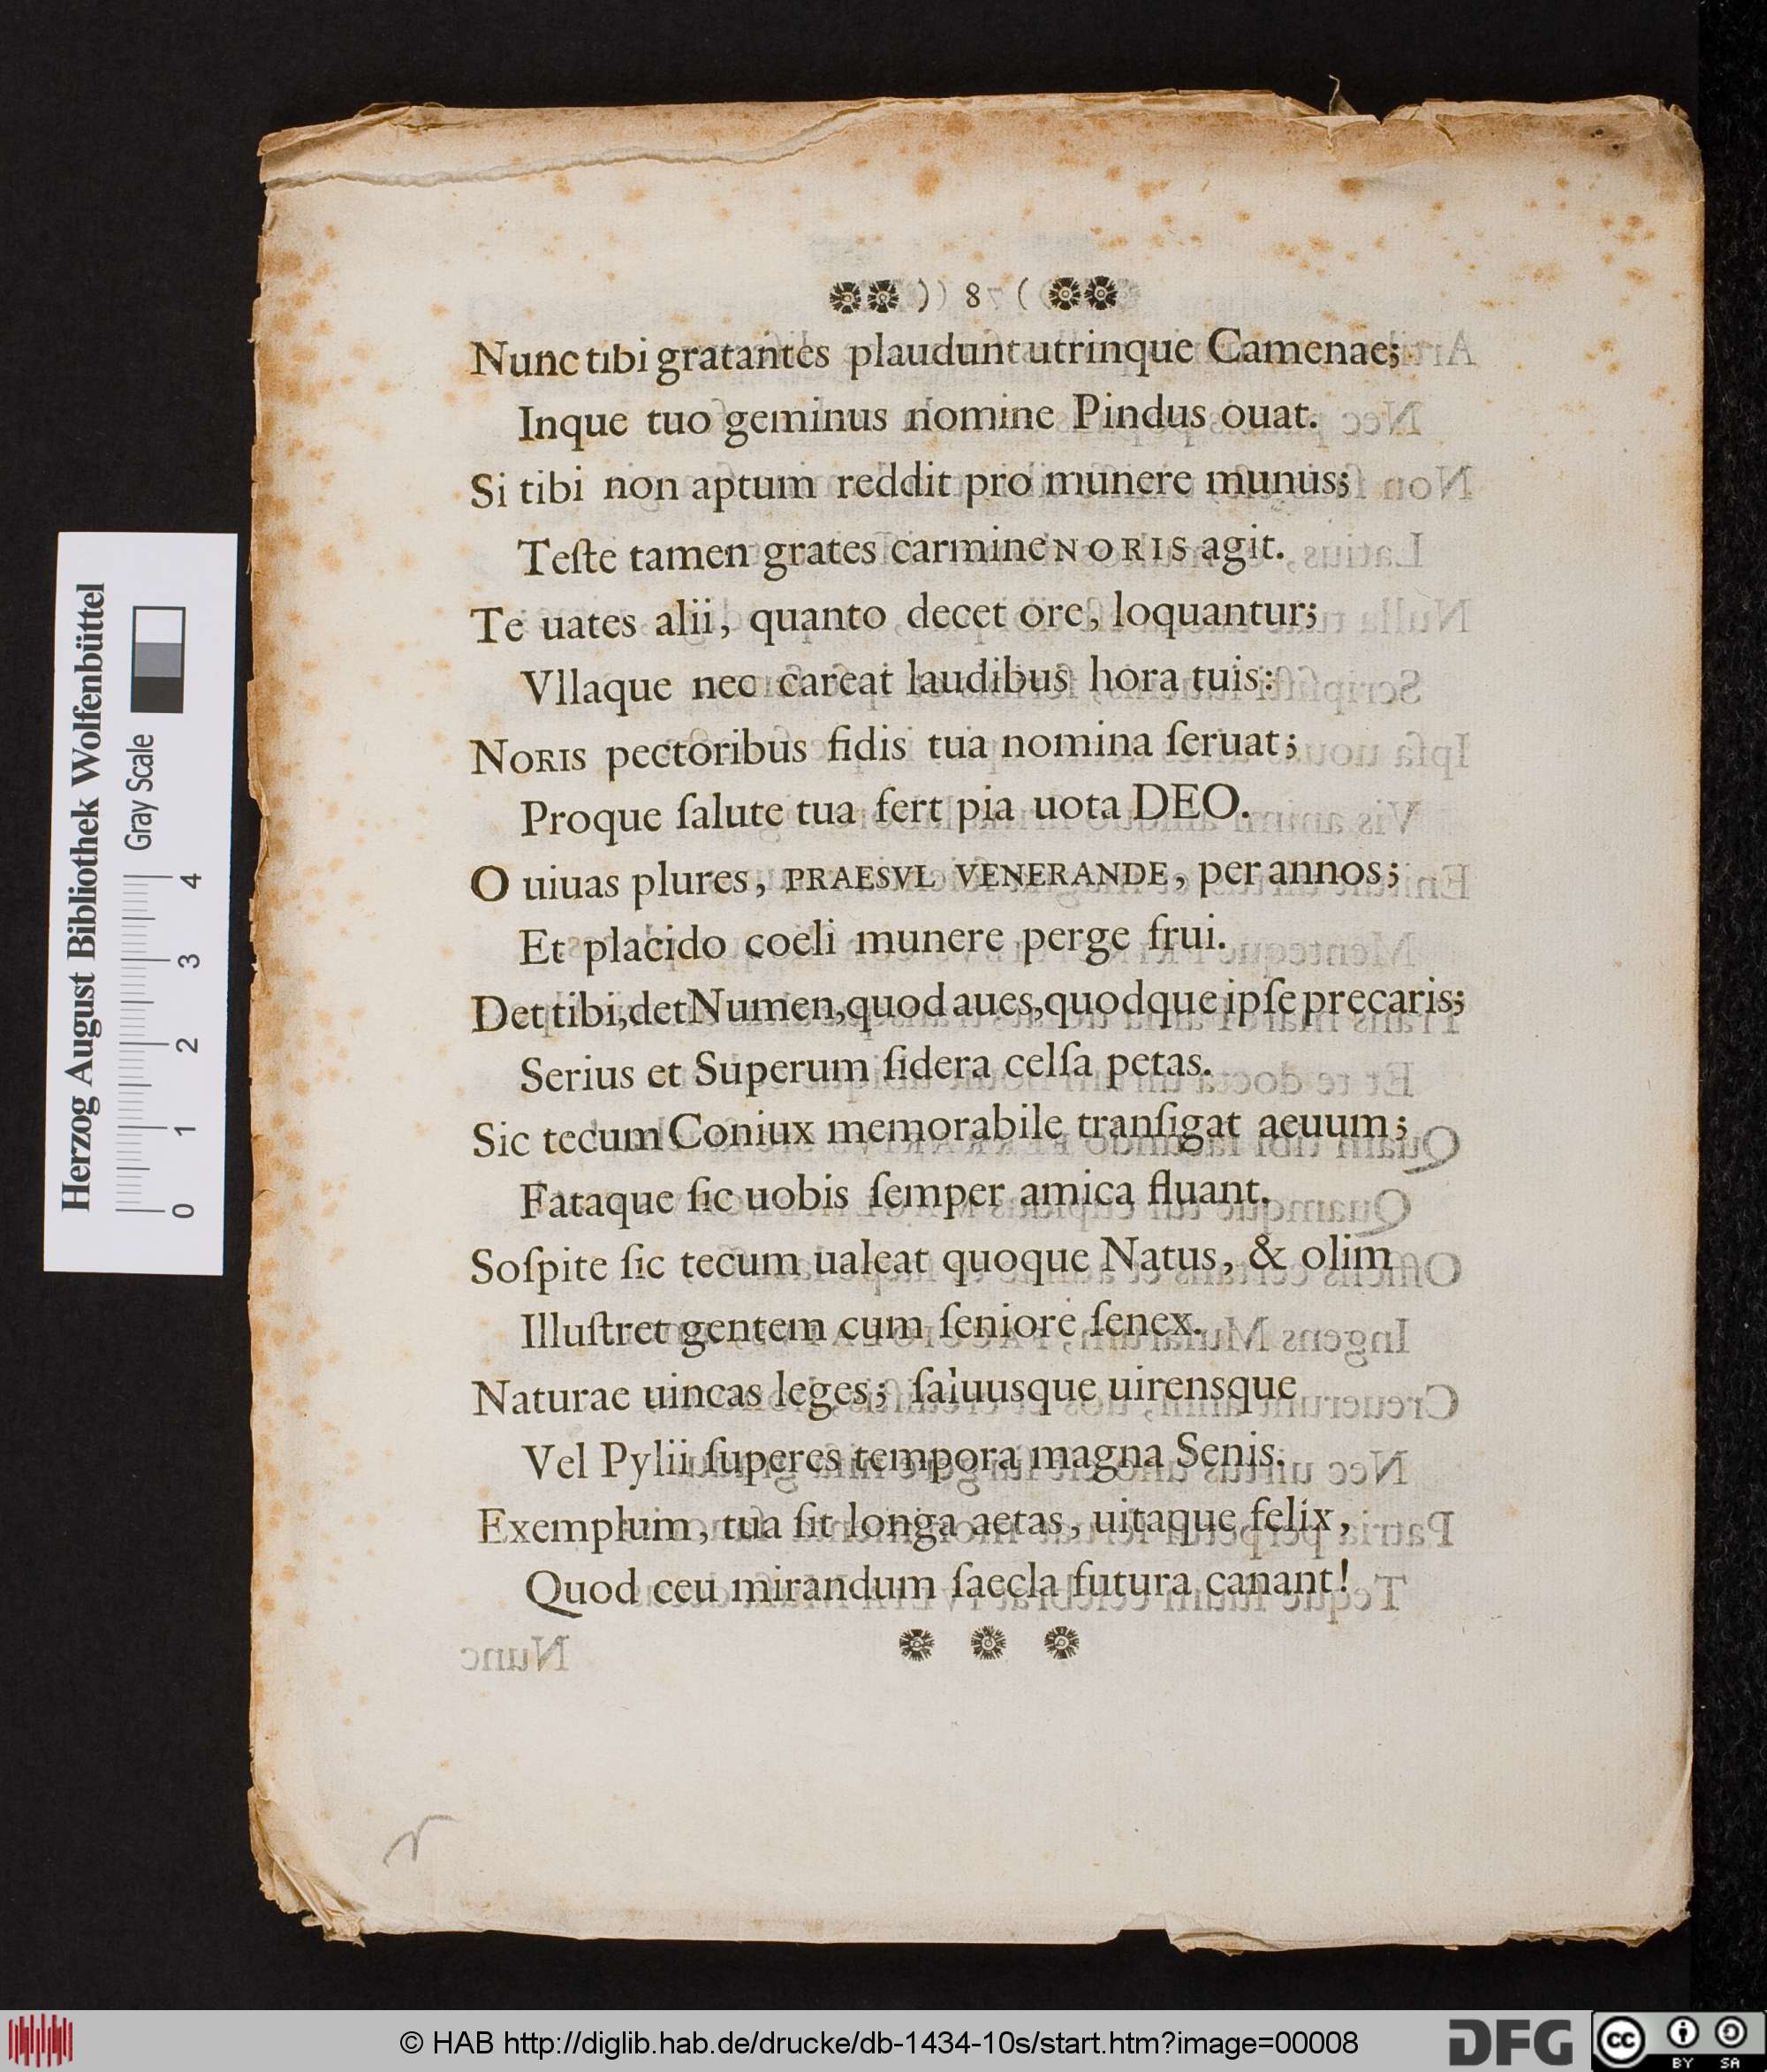 ) 8 (
Nunc tibi gratantes plaudunt utrinque Camenae;
Inque tuo geminus nomine Pindus ouat.
Si tibi non aptum reddit pro munere munus;
Teſte tamen grates carmine NORIS agit.
Te uates alii, quanto decet ore, loquantur;
Vllaque nec careat laudibus hora tuis:
NORIS pectoribus fidis tua nomina ſeruat;
Proque ſalute tua fert pia uota DEO.
O uiuas plures, PRAESVL VENERANDE, per annos;
Et placido coeli munere perge frui.
Det tibi, det Numen, quod aues, quodque ipſe precaris;
Serius et Superum ſidera celſa petas.
Sic tecum Coniux memorabile tranſigat aeuum;
Fataque ſic uobis ſemper amica fluant.
Soſpite ſic tecum ualeat quoque Natus, & olim
Illuſtret gentem cum ſeniore ſenex.
Naturae uincas leges; ſaluusque uirensque
Vel Pylii ſuperes tempora magna Senis.
Exemplum, tua ſit longa aetas, uitaque felix,
Quod ceu mirandum ſaecla futura canant!
Herzog August Bibliothek Wolfenbüttel
Gray Scale
0 1 2 3 4
© HAB http://diglib.hab.de/drucke/db-1434-10s/start.htm?image=00008
DFG
cc BY SA